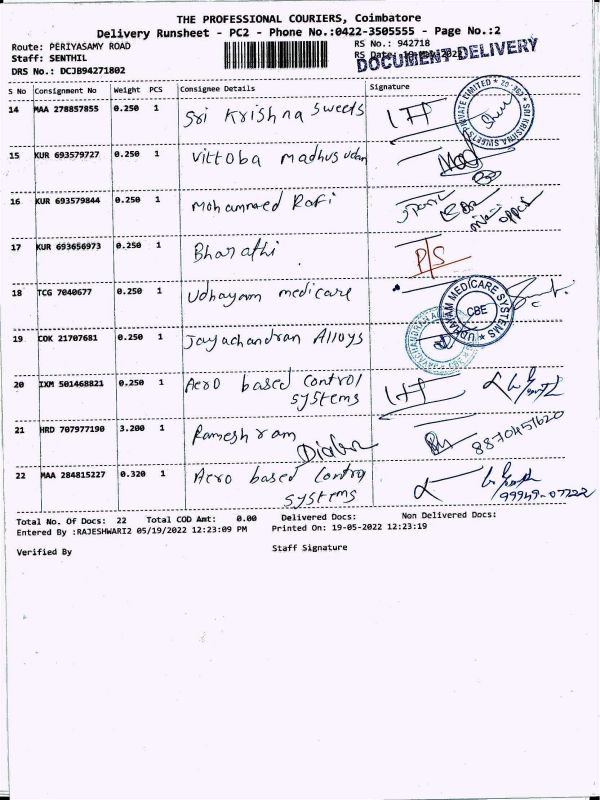 THE PROFESSIONAL COURIERS, Coimbatore
Delivery Runsheet - PC2 - Phone No.:0422-3505555 - Page No.:2
Route: PERIYASAMY ROAD
Staff: SENTHIL
DRS No.: DCJB94271802
RS No.: 942718
RS Date: 19-May-2022
DOCUMENT DELIVERY
S No Consignment No Weight PCS Consignee Details Signature
14 MAA 278857855 0.250 1 Sri Krishna Sweets
15 KUR 693579727 0.250 1 Vittoba Madhusudan
16 KUR 693579844 0.250 1 Mohammed Rafi
17 KUR 693656973 0.250 1 Bharathi P/S
18 TCG 7040677 0.250 1 Udhayam medicare
UDHAYAM MEDICARE SYSTEMS CBE
19 COK 21707681 0.250 1 Jayachandran Alloys
20 IXM 501468821 0.250 1 Aero based control
systems
21 HRD 707977190 3.200 1 Ramesh ram
8870451620
22 MAA 284815227 0.320 1 Aero based control
systems
99949-07222
Total No. Of Docs: 22 Total COD Amt: 0.00 Delivered Docs: Non Delivered Docs:
Entered By :RAJESHWARI2 05/19/2022 12:23:09 PM Printed On: 19-05-2022 12:23:19
Verified By Staff Signature